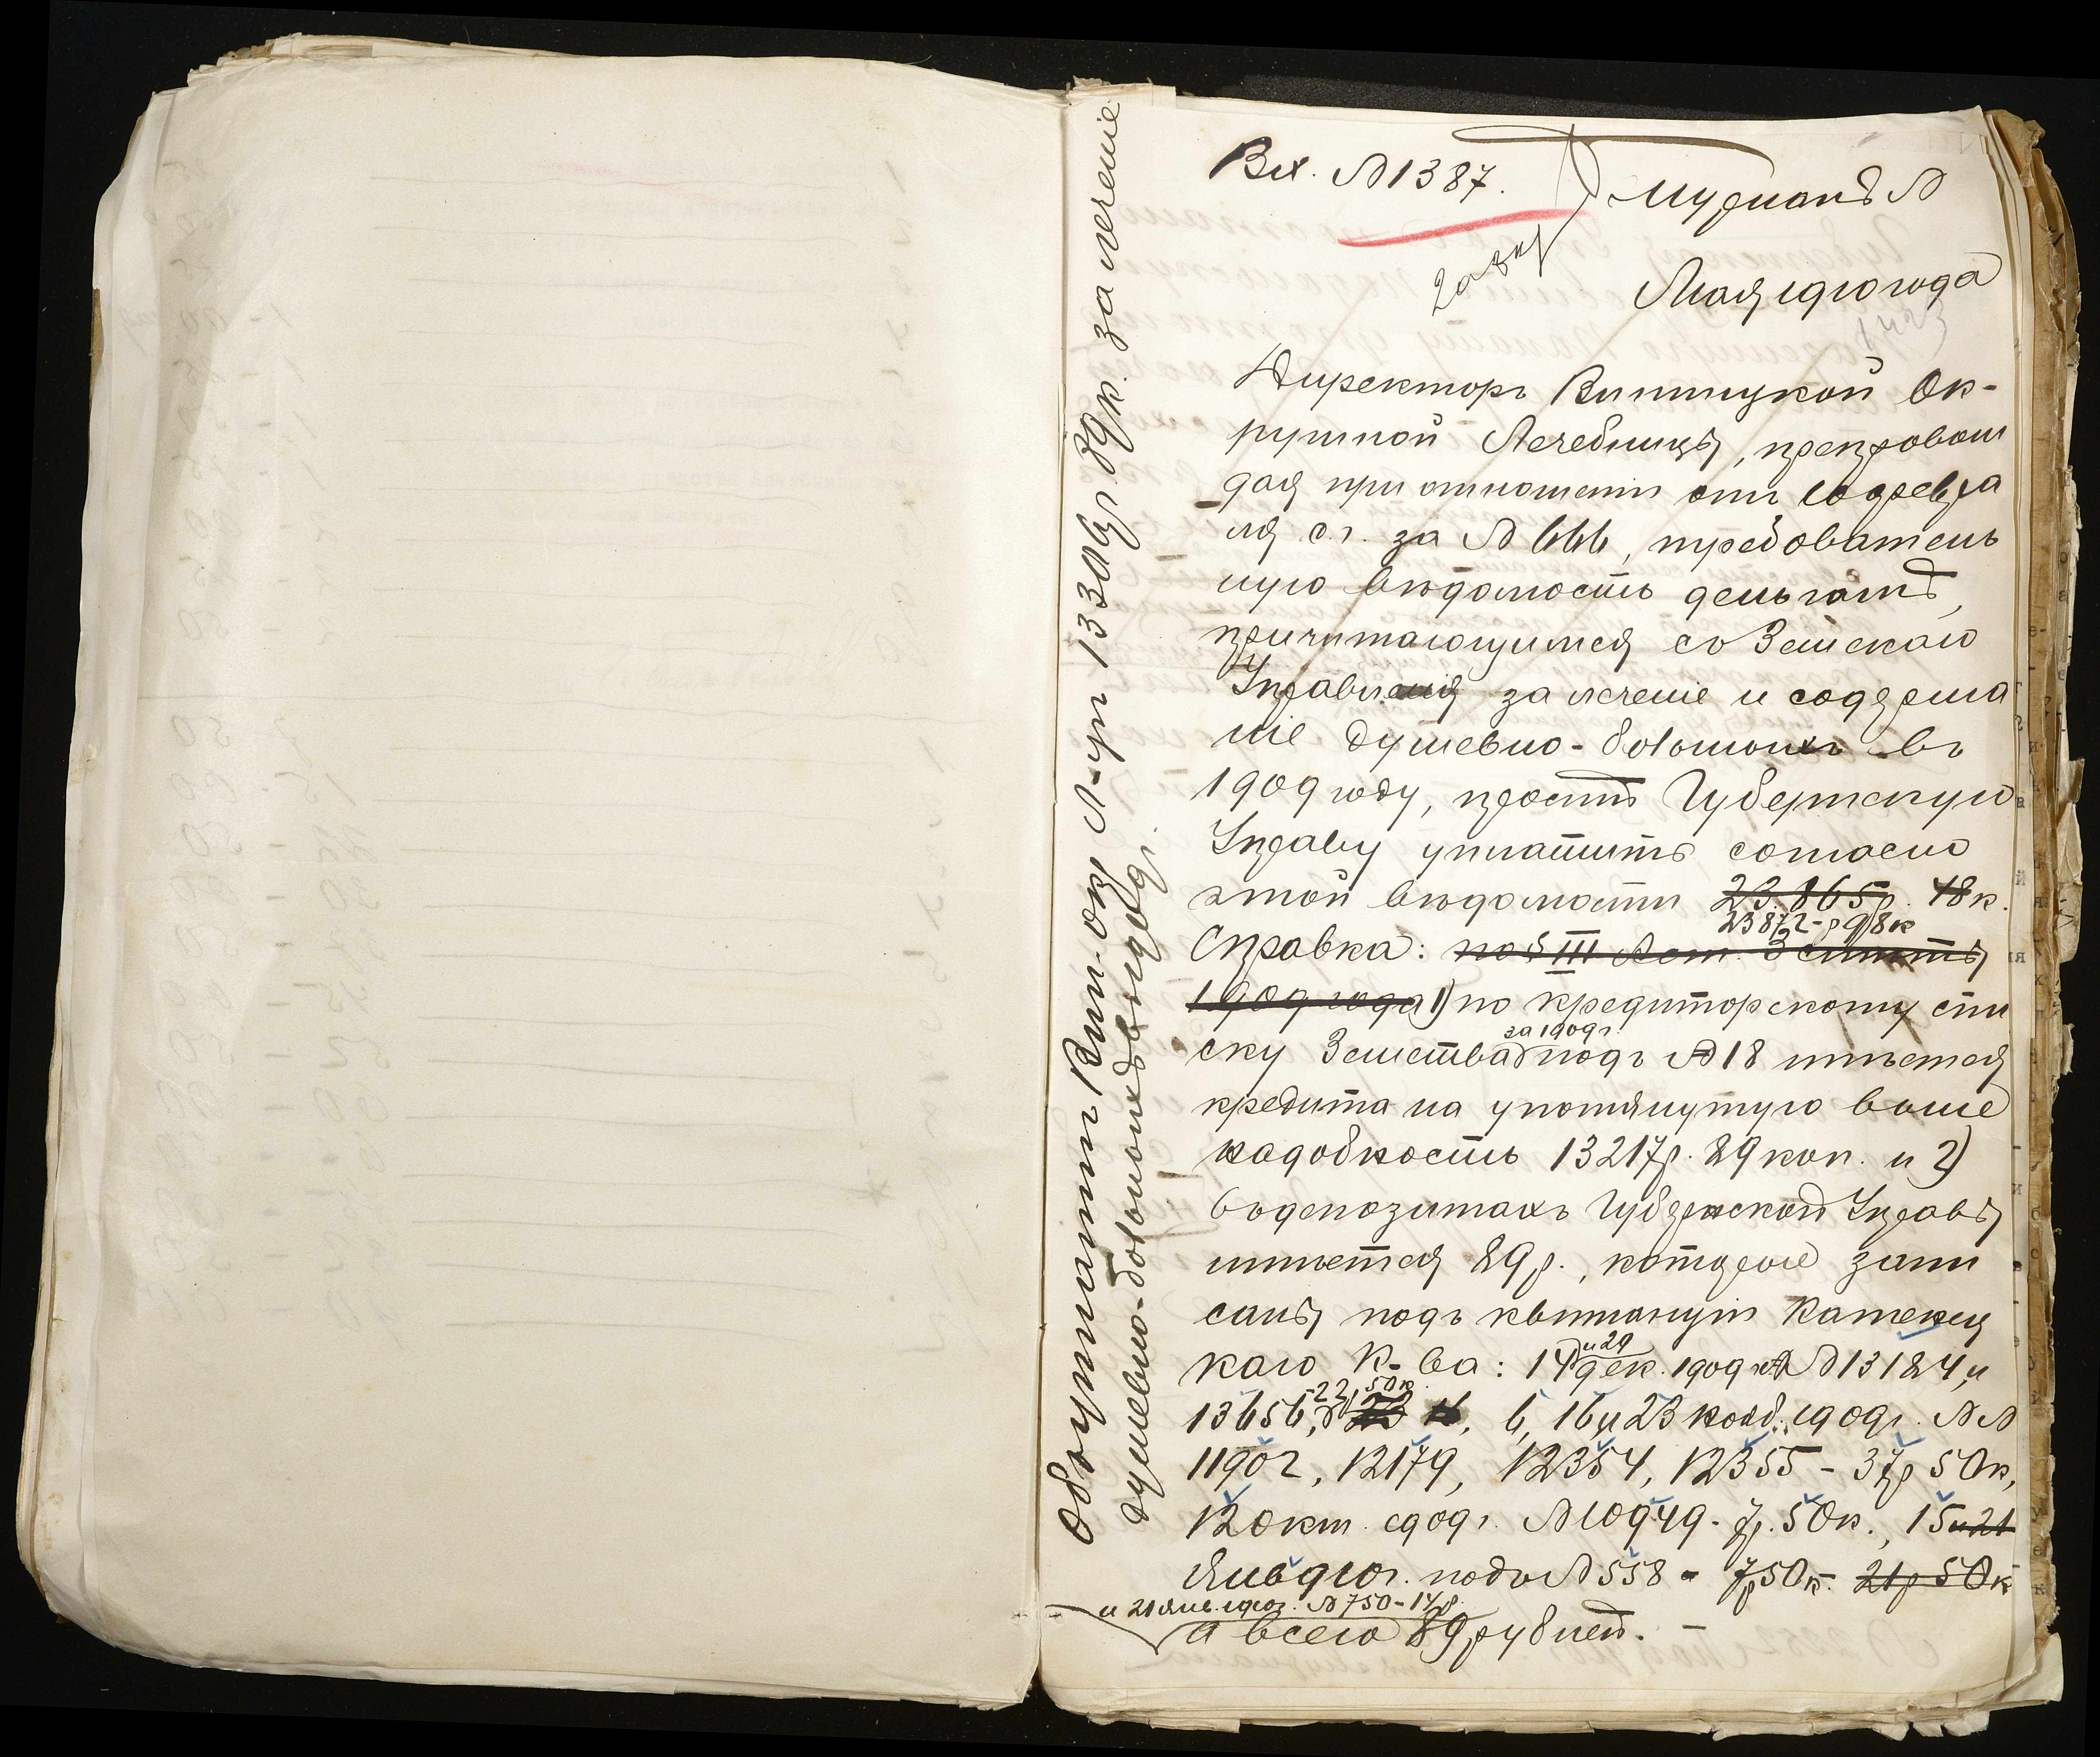 Вх. № 1387.
Журналъ №
Мая 1910 года
Директоръ Винницкой Ок-
ружной Лечебницы, препровож
дая при отношеніи отъ 10 февра
ля с.г. за № 666, требователь
ную вѣдомость деньгамъ,
причитающимся съ Земскаго
Управленія за леченіе и содержа
ніе душевно-больныхъ въ
1909 году, проситъ Губернскую
Управу уплатить согласно
этой вѣдомости 23.865р. 48к.
23872-р 98к
Справка: по § III
1909 года 1) по кредиторскому спи
ску Земства за 1909г. подъ № 18 имѣется
кредита на упомянутую выше
надобность 13217р. 89 коп. и 2)
въ депозитахъ Губернской Управы
имѣется 89р., которые запи
саны подъ квитанціи Казначей
каго К-ва: 14 и 29 дек. 1909 г. № 13184, и
13656, 22р 50к, 6, 16 и 23 нояб. 1909г. №№
11902, 12179, 12354, 12355 - 37р 50к,
12 окт. 1909г. № 10949 - 7р. 50к., 15 и 21
Янв 910г. подъ № 558 - 7р 50к. 21р 50к
и 21 янв. 1910г. № 750 - 14р
а всего 89 рублей. -
Объ уплатѣ Вин. окр. л-цѣ 13306р 89к. за леченіе
душевно-больныхъ въ 1909г.